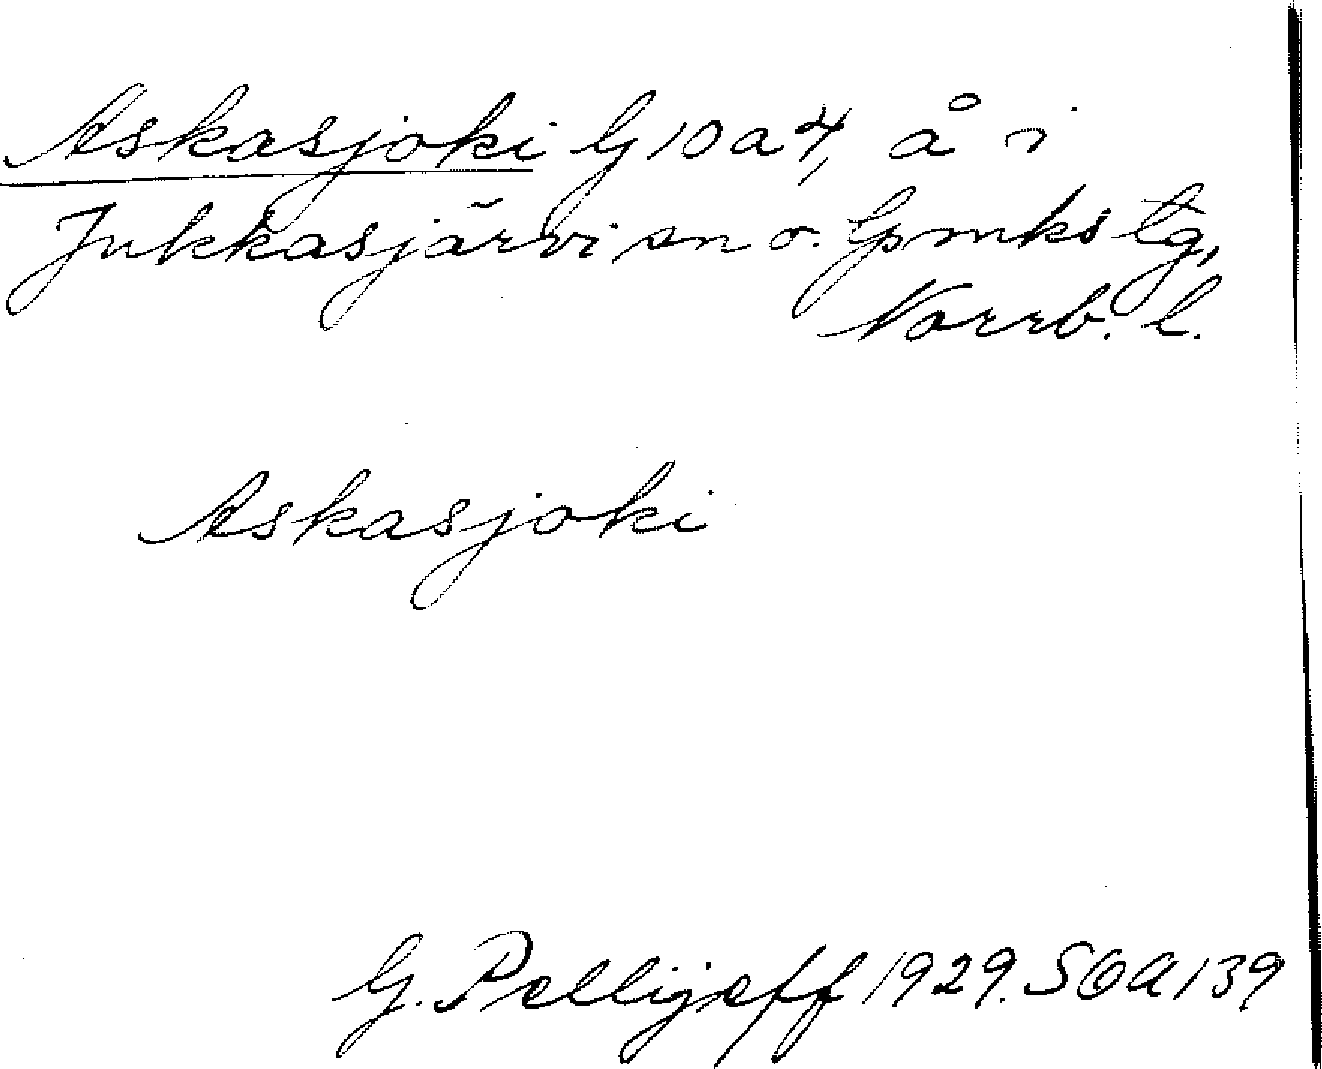 Askasjoki G 10 a 4, å i
Jukkasjärvi sn o. Lpmks tg,
Norrb. l.
Askasjoki
G. Pellijeff 1929. SOA 139